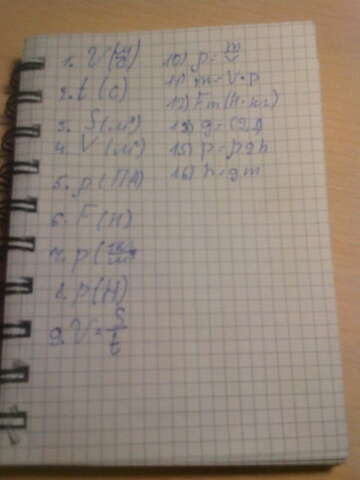 1. V (м/с)
2. t (с)
3. S (м²)
4. V (м³)
5. p (ПА)
6. F (Н)
7. p (кг/м³)
8. p (Н)
9. V = S/t
10) p = m/V
11) m = V · p
13) g =
15) p = pgh
16) h = gm